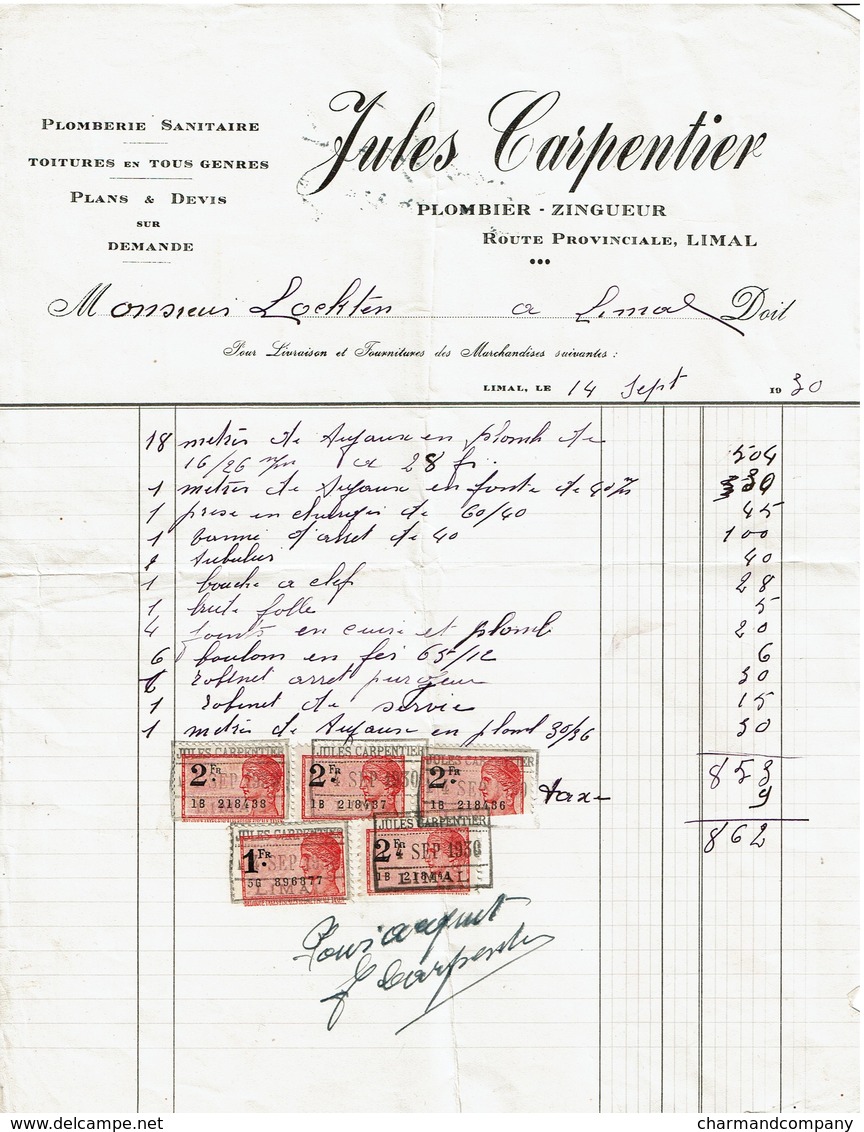 PLOMBERIE SANITAIRE
TOITURES EN TOUS GENRES
PLANS & DEVIS
SUR
DEMANDE
Jules Carpentier
PLOMBIER - ZINGUEUR
ROUTE PROVINCIALE, LIMAL
Monsieur Lockten a Limal Doit
Pour Livraison et Fournitures des Marchandises suivantes :
LIMAL, LE 14 Sept 1930
18 metres de tuyaux en plomb de
16/26 m/m a 28 fr. 504
1 metres de tuyaux en fonte de 40 m/m 30
1 prise en charge de 60/40 45
1 d'arret de 40 100
2 tubulus 40
1 bouche a clef 28
1 folle 5
4 joints en et plomb 20
6 boulons en fer 65/12 6
1 robinet arret purgeur 30
1 robinet de service 15
1 metres de tuyaux en plomb 30/36 30
853
taxe 9
862
JULES CARPENTIER
2 FR
SEP 1930
1B 218438
LIMAL
JULES CARPENTIER
2 FR
4 SEP 1930
1B 218437
JULES CARPENTIER
2 FR
SEP
1B 218436
JULES CARPENTIER
1 FR
SEP
5G 896877
LIMAL
JULES CARPENTIER
2 FR
4 SEP 1930
1B
LIMAL
Pour acquit
J Carpentier
delcampe.net
charmandcompany